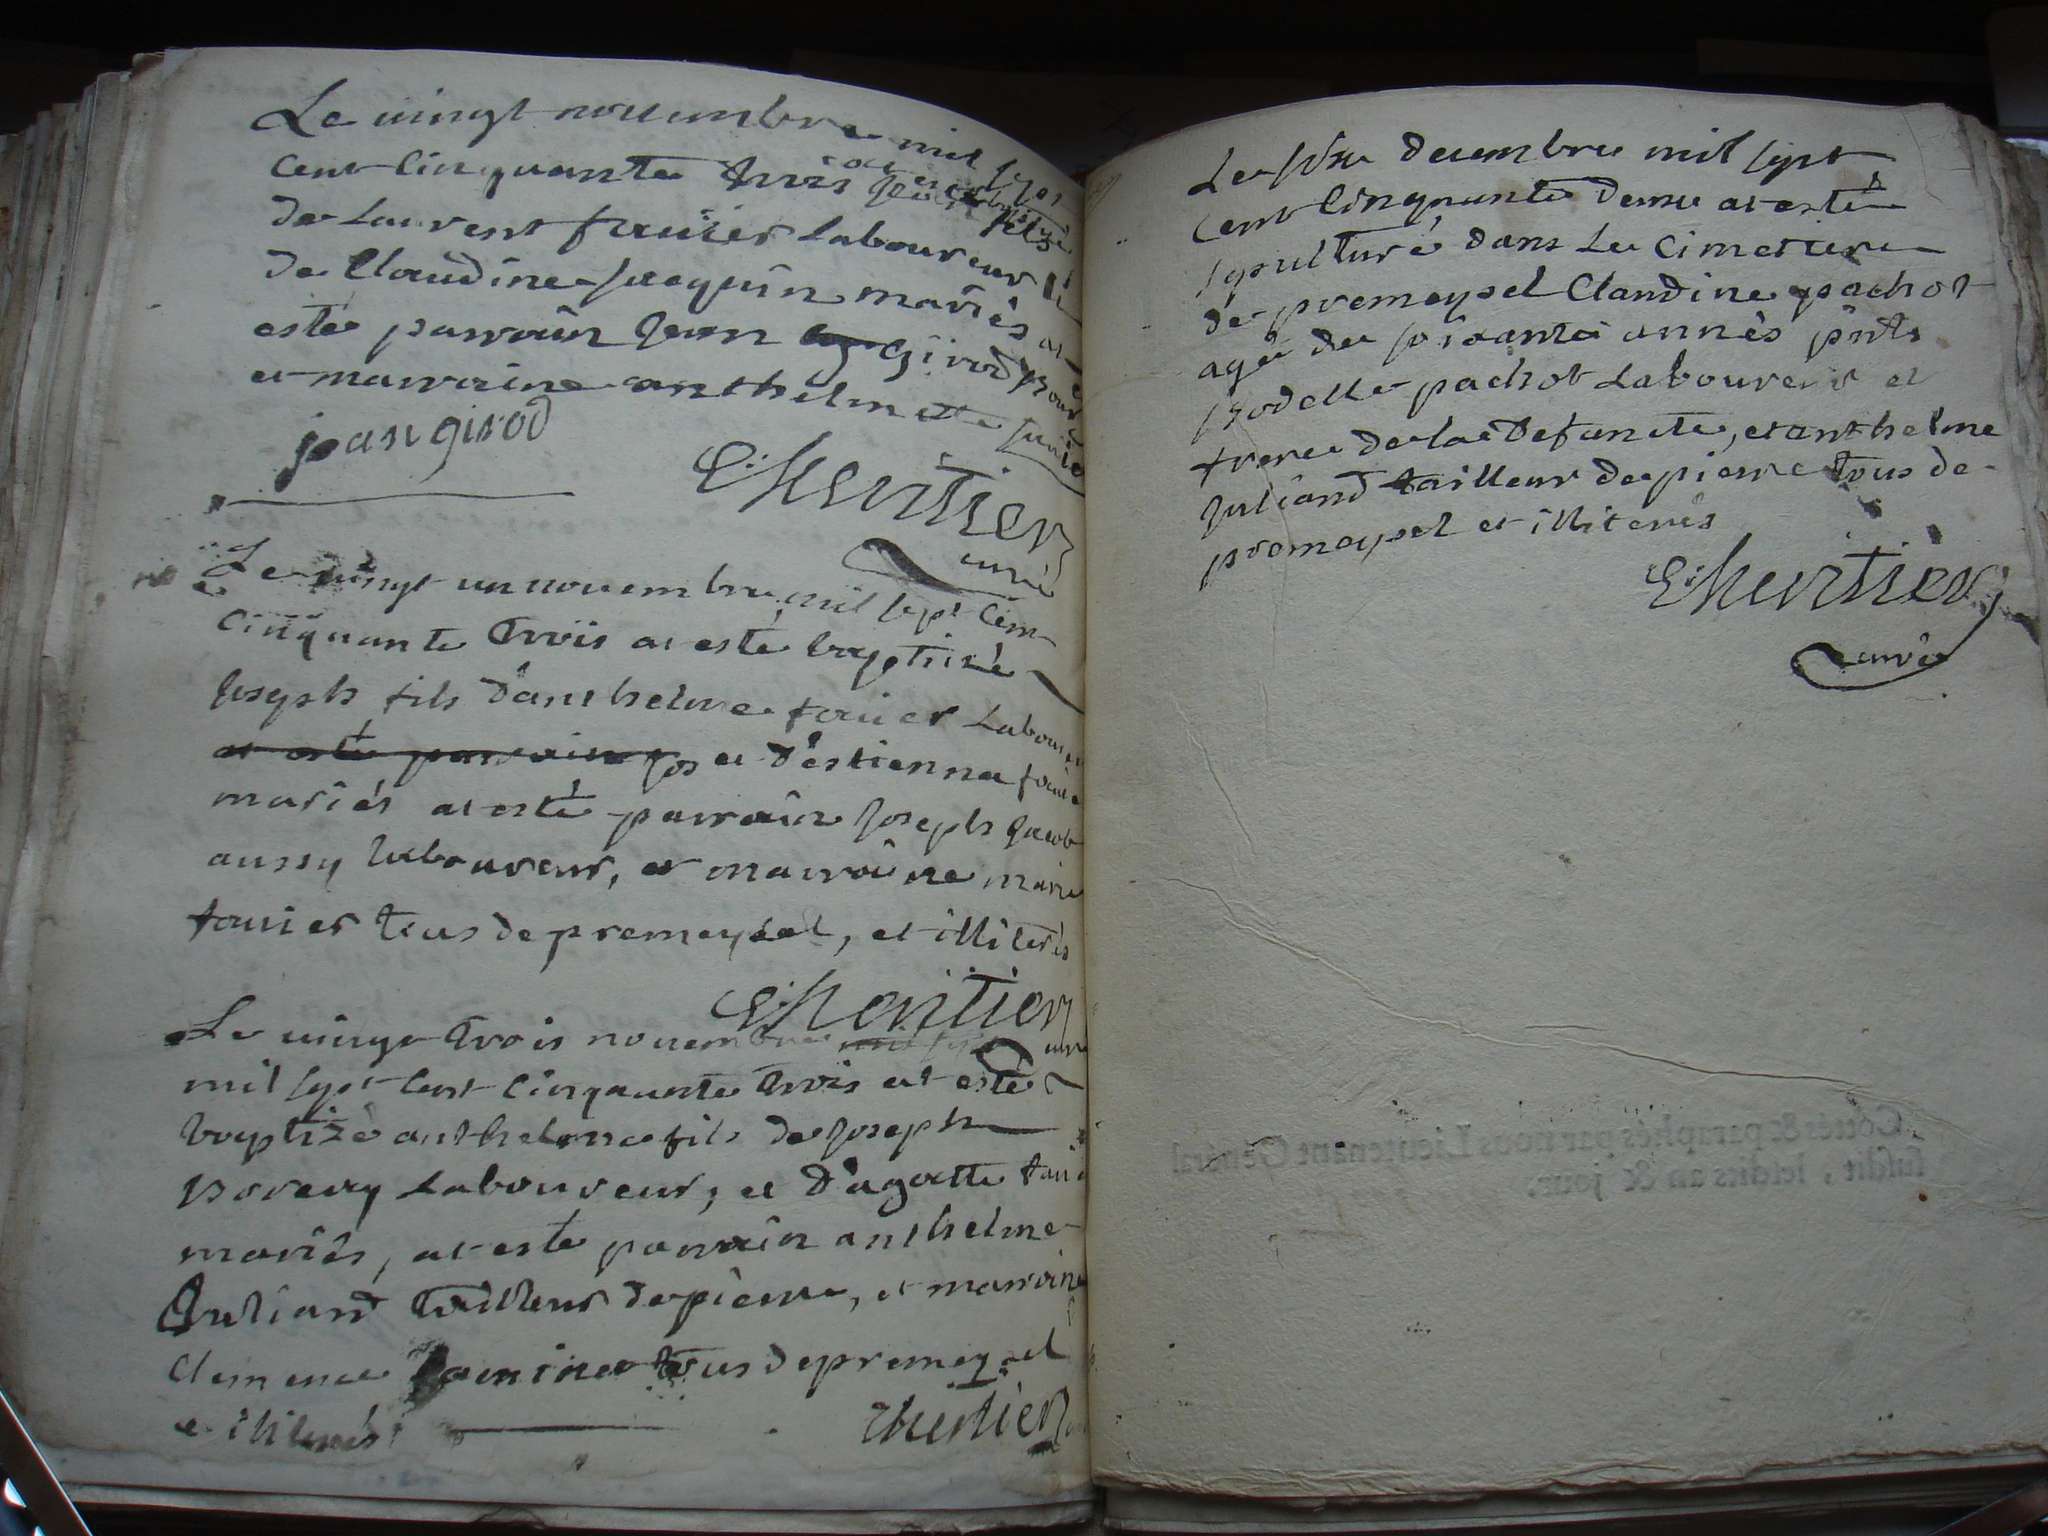 Le vingt novembre mil sept
cent cinquante trois at esté baptisé
fils
de Laurent fauier Laboureur et
de Claudine Jacquin mariés at
esté parrain Jean Girod
et marraine anthelmette
jean girod
E: lheritier
curé
Le vingt un novembre mil sept cent
cinquante trois at esté baptisé
Joseph fils d'anthelme fauier Laboureur
at esté parrain Jos et d'estienna
mariés at esté parrain Joseph Jacob
aussy laboureur, et marraine marie
fauier tous de premeyzel, et illiterés
E: lheritier
curé
Le vingt trois novembre mil sept
mil sept cent cinquante trois at esté
baptizé anthelme fils de Joseph
Laboureur, et d'agatte
mariés, at esté parrain anthelme
Juliand tailleur de pierre, et marraine
Clemence tous de premeyzel
e illiterés
E lheritier
Le decembre mil sept
cent cinquante at esté
sepulturé dans Le Cimetiere
de premeyzel Claudine pachot
agée de soixante annés pnts
pachot Laboureur et
frere de la defuncte, et anthelme
Juliand tailleur de pierre tous de
premeyzel et illiterés
E: lheritier
curé
Cottés & paraphés par nous Lieutenant Général
susdit, lesdits an & jour.